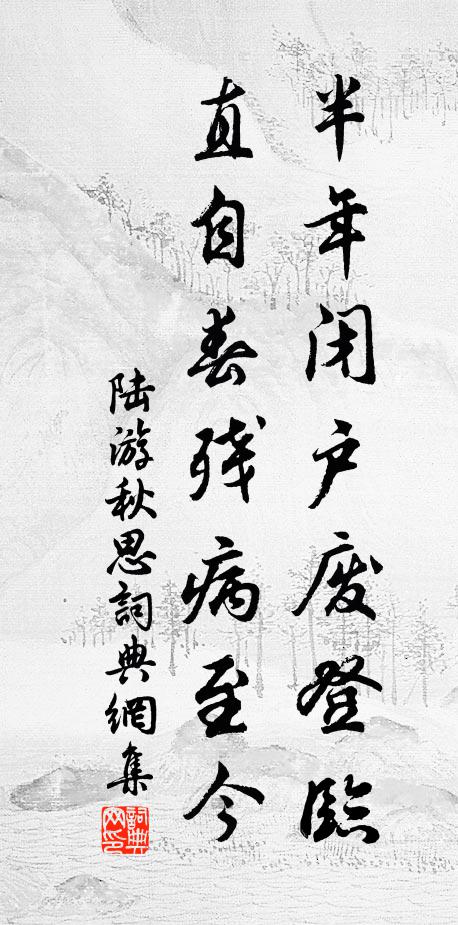 半年闭户废登临
直自春残病至今
陆游秋思詞典網集
詞典网印